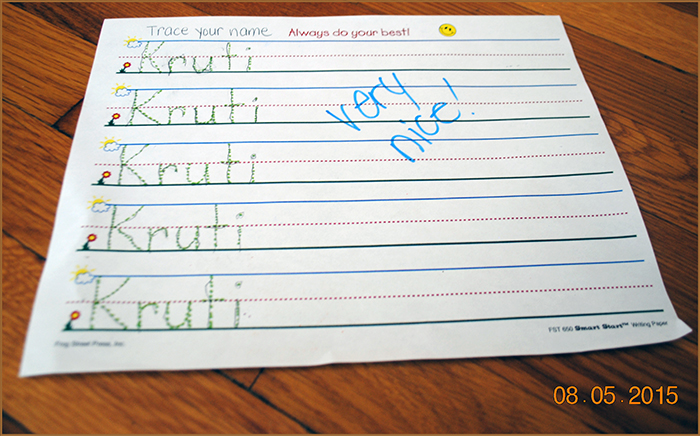 Trace your name Always do your best!
Kruti
Kruti
very
nice!
Kruti
Kruti
Kruti
FST 650 Smart Start™ Writing Paper
Frog Street Press, Inc.
08.05.2015